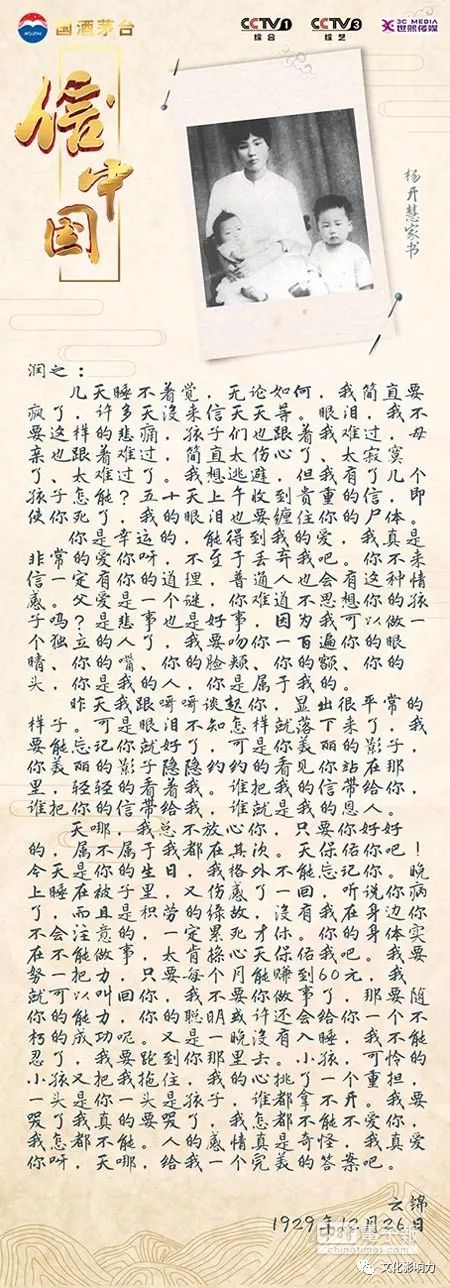 国酒茅台
CCTV1
综合
CCTV3
综艺
3C MEDIA
世熙传媒
信中国
杨开慧家书
润之：
几天睡不着觉，无论如何，我简直要
疯了，许多天没来信天天等。眼泪，我不
要这样的悲痛，孩子们也跟着我难过，母
亲也跟着难过，简直太伤心了、太寂寞
了、太难过了。我想逃避，但我有了几个
孩子怎能？五十天上午收到贵重的信，即
使你死了，我的眼泪也要缠住你的尸体。
你是幸运的，能得到我的爱，我真是
非常的爱你呀，不至于丢弃我吧。你不来
信一定有你的道理，普通人也会有这种情
感。父爱是一个谜，你难道不思想你的孩
子吗？是悲事也是好事，因为我可以做一
个独立的人了，我要吻你一百遍你的眼
睛、你的嘴、你的脸颊、你的额、你的
头，你是我的人，你是属于我的。
昨天我跟哥哥谈起你，显出很平常的
样子。可是眼泪不知怎样就落下来了，我
要能忘记你就好了，可是你美丽的影子，
你美丽的影子隐隐约约的看见你站在那
里，轻轻的看着我。谁把我的信带给你，
谁把你的信带给我，谁就是我的恩人。
天哪，我总不放心你，只要你好好
的，属不属于我都在其次。天保佑你吧！
今天是你的生日，我格外不能忘记你。晚
上睡在被子里，又伤感了一回，听说你病
了，而且是积劳的缘故，没有我在身边你
不会注意的，一定累死才休。你的身体实
在不能做事，太肯操心天保佑我吧。我要
努一把力，只要每个月能赚到60元，我
就可以叫回你，我不要你做事了，那要随
你的能力，你的聪明或许还会给你一个不
朽的成功呢。又是一晚没有入睡，我不能
忍了，我要跑到你那里去。小孩，可怜的
小孩又把我拖住，我的心挑了一个重担，
一头是你一头是孩子，谁都拿不开。我要
哭了我真的要哭了，我怎都不能不爱你，
我怎都不能。人的感情真是奇怪，我真爱
你呀，天哪，给我一个完美的答案吧。
云锦
1929年12月26日
chinatimes.com
文化影响力